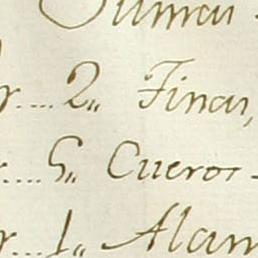 Suman
2,, Finas,
5,, Cueros
1,, Alam